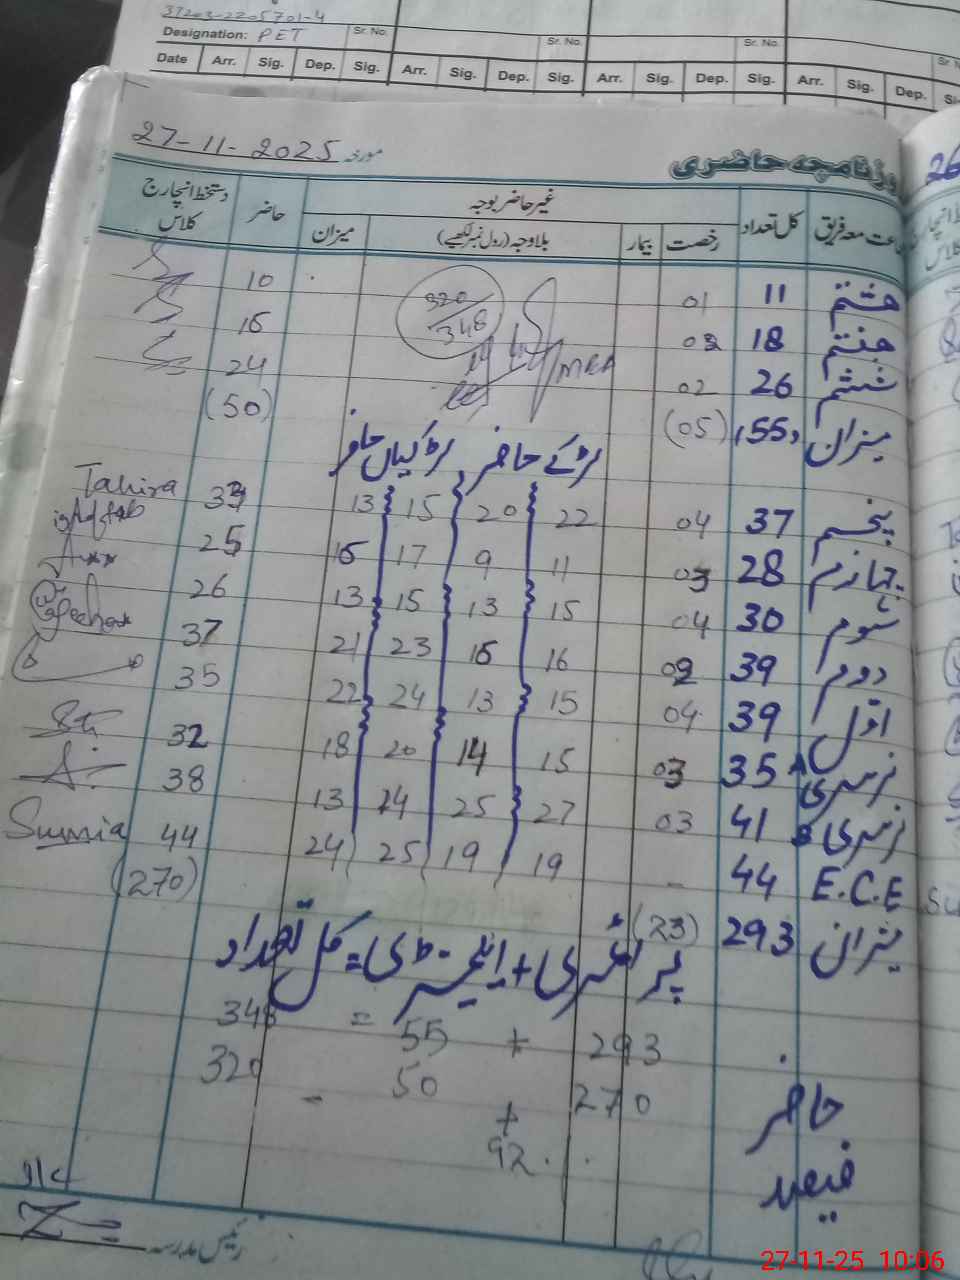 37203-2205701-4
Designation: PET Sr. No. Sr. No. Sr. No.
Date Arr. Sig. Dep. Sig. Arr. Sig. Dep. Sig. Arr. Sig. Dep. Sig. Arr. Sig. Dep.
روزنامچہ حاضری مورخہ 27-11-2025
جماعت معہ فریق کل تعداد غیر حاضر بوجہ حاضر دستخط انچارج کلاس
رخصت بیمار بلاوجہ (رول نمبر لکھیے) میزان
ہشتم 11 01 10
ہفتم 18 02 16
ششم 26 02 24
میزان 55 (05) (50)
320/348
MEA
لڑکے حاضر لڑکیاں حاضر
پنجم 37 04 22 20 15 13 33 Tahira
چہارم 28 03 11 9 17 16 25 Aftab
سوم 30 04 15 13 15 13 26
دوم 39 02 16 16 23 21 37
اول 39 04 15 13 24 22 35
نرسری A 35 03 15 14 20 18 32
نرسری B 41 03 27 25 14 13 38
E.C.E 44 - 19 19 25 24 44 Sumia
میزان 293 (23) (270)
پرائمری + ایلیمنٹری = کل تعداد
293 + 55 = 348
حاضر 270 + 50 - 320
فیصد 92
رئیس مدرسہ
27-11-25 10:06